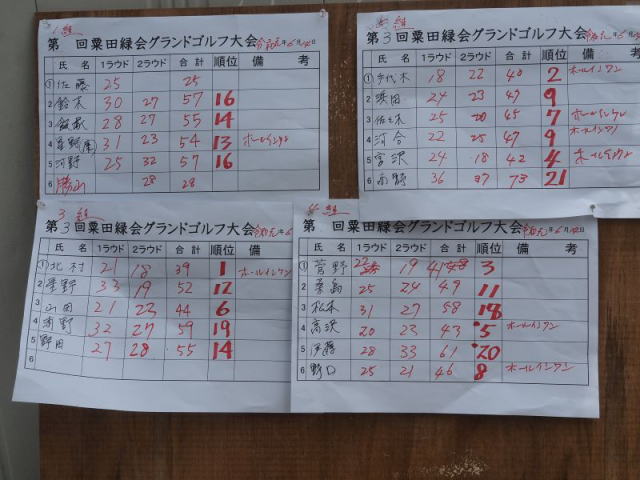 1組
第 回粟田緑会グランドゴルフ大会 令和元年6月
氏 名 1ラウド 2ラウド 合 計 順位 備 考
① 佐藤 25 25
2 鈴木 30 27 57 16
3 飯島 28 27 55 14
4 星野 31 23 54 13 ホールインワン
5 河野 25 32 57 16
6 28 28
第3回粟田緑会グランドゴルフ大会 令和元年6月
氏 名 1ラウド 2ラウド 合 計 順位 備 考
① 18 22 40 2 ホールインワン
2 浜田 24 23 47 9
3 佐々木 25 20 45 7 ホールインワン
4 河合 22 25 47 9 ホールインワン
5 宮沢 24 18 42 4 ホールインワン
6 高野 36 37 73 21
3組
第3回粟田緑会グランドゴルフ大会 令和元年6
氏 名 1ラウド 2ラウド 合 計 順位 備
① 北村 21 18 39 1 ホールインワン
2 星野 33 19 52 12
3 山田 21 23 44 6
4 浦野 32 27 59 19
5 野田 27 28 55 14
6
4組
第 回粟田緑会グランドゴルフ大会 令和元年6月
氏 名 1ラウド 2ラウド 合 計 順位 備 考
① 菅野 22 19 41 3
2 桑島 25 24 49 11
3 松本 31 27 58 18
4 高沢 20 23 43 5 ホールインワン
5 伊藤 28 33 61 20
6 野口 25 21 46 8 ホールインワン